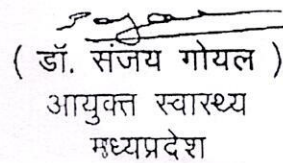 ( डॉ. संजय गोयल )
आयुक्त स्वास्थ्य
मध्यप्रदेश